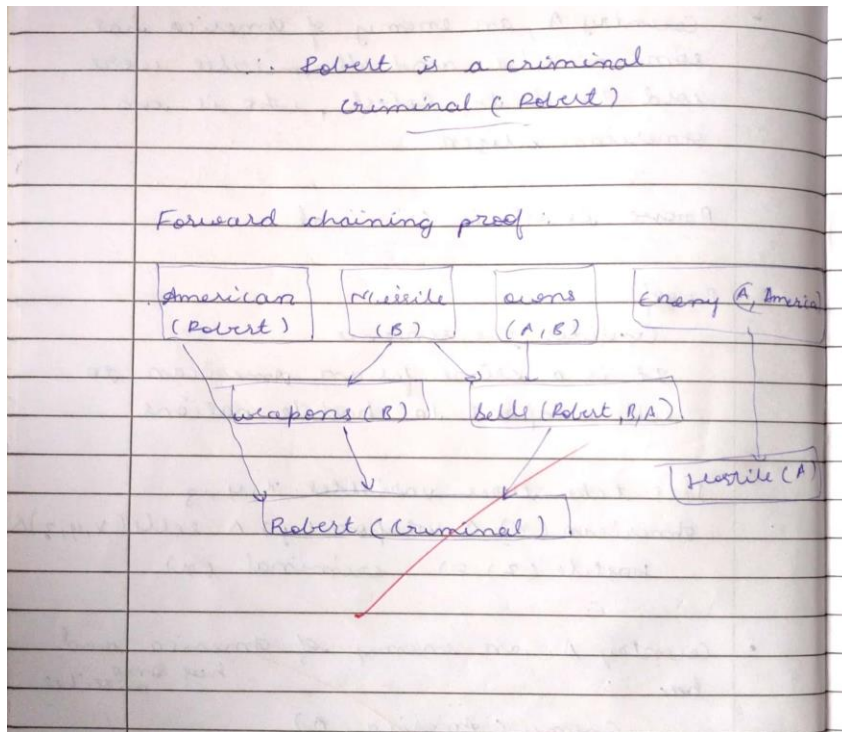 ∴ Robert is a criminal
criminal (Robert)
Forward chaining proof:
American Missile owns Enemy (A, America)
(Robert) (B) (A, B)
weapons (B) Sells (Robert, B, A)
Hostile (A)
Robert (Criminal)